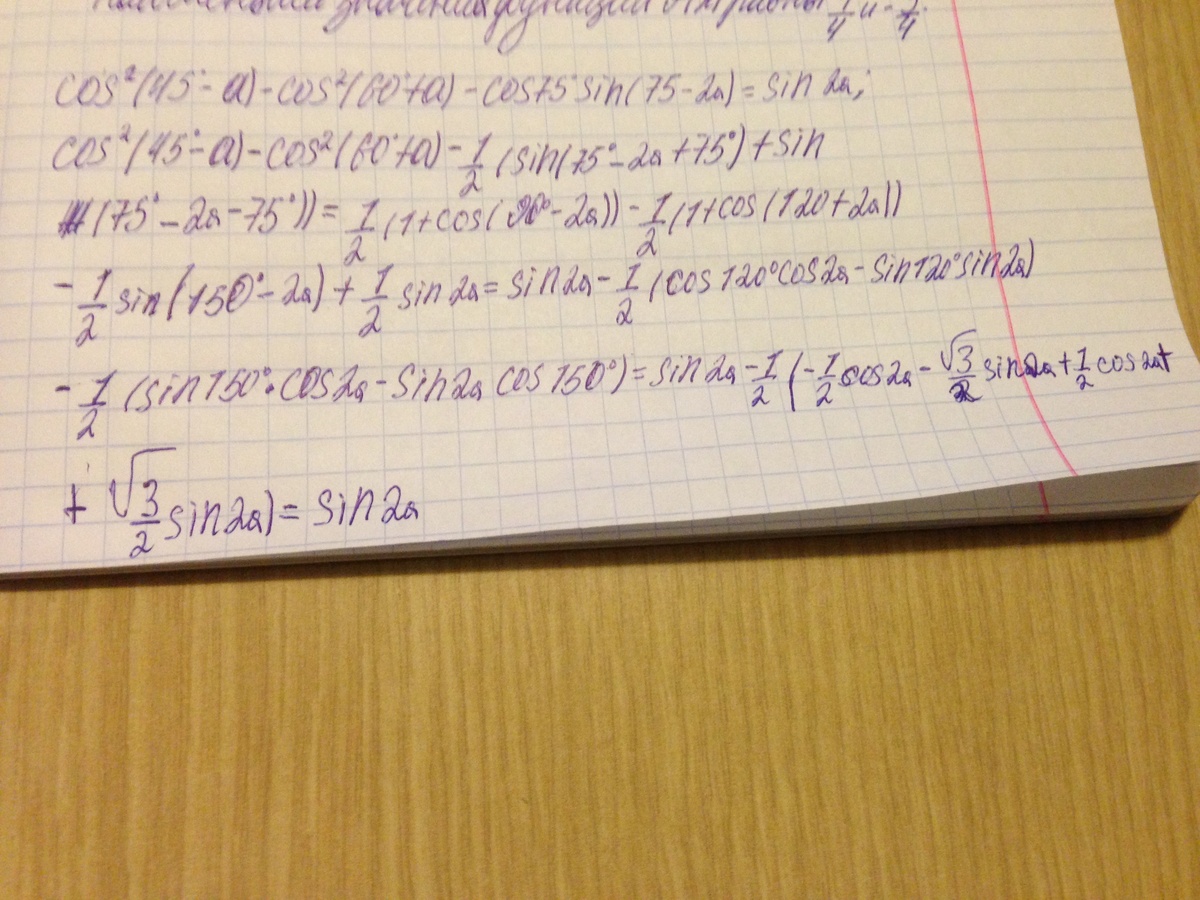 значения функции равны 1/4 и -1/4.
cos²(45°-a)-cos²(60°+a)-cos75°sin(75-2a)=sin2a;
cos²(45°-a)-cos²(60°+a)-1/2(sin(75°-2a+75°)+sin
(75°-2a-75°))=1/2(1+cos(90°-2a))-1/2(1+cos(120+2a))
-1/2sin(150°-2a)+1/2sin2a=sin2a-1/2(cos120°cos2a-sin120°sin2a)
-1/2(sin150°·cos2a-sin2a cos150°)=sin2a-1/2(-1/2cos2a-√3/2sin2a+1/2cos2a+
+√3/2sin2a)=sin2a